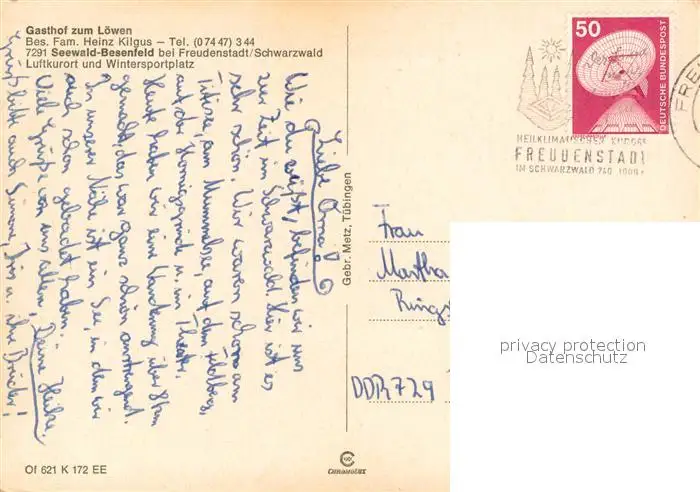 Gasthof zum Löwen
Bes. Fam. Heinz Kilgus – Tel. (0 74 47) 3 44
7291 Seewald-Besenfeld bei Freudenstadt/Schwarzwald
Luftkurort und Wintersportplatz
Liebe Oma!
Wie du weißt, befinden wir uns
zur Zeit im Schwarzwald. Hier ist es
sehr schön. Wir waren schon am
Titisee, am Mummelsee, auf dem Feldberg,
auf der Hornisgrinde u. im Theater.
Heute haben wir eine Wanderung über 8 km
gemacht, das war ganz schön anstrengend.
In unserer Nähe ist ein See, in dem wir
auch schon gebadet haben.
Viele Grüße von uns allen, Deine Heike.
Grüß bitte auch Simon, u. ihre Brüder!
Gebr. Metz, Tübingen
50
DEUTSCHE BUNDESPOST
HEILKLIMATISCHER KURORT
FREUDENSTADT
IM SCHWARZWALD 740 1000
FREU
Frau
Martha
Rings
DDR 729
privacy protection
Datenschutz
Of 621 K 172 EE
CHROMOLUX